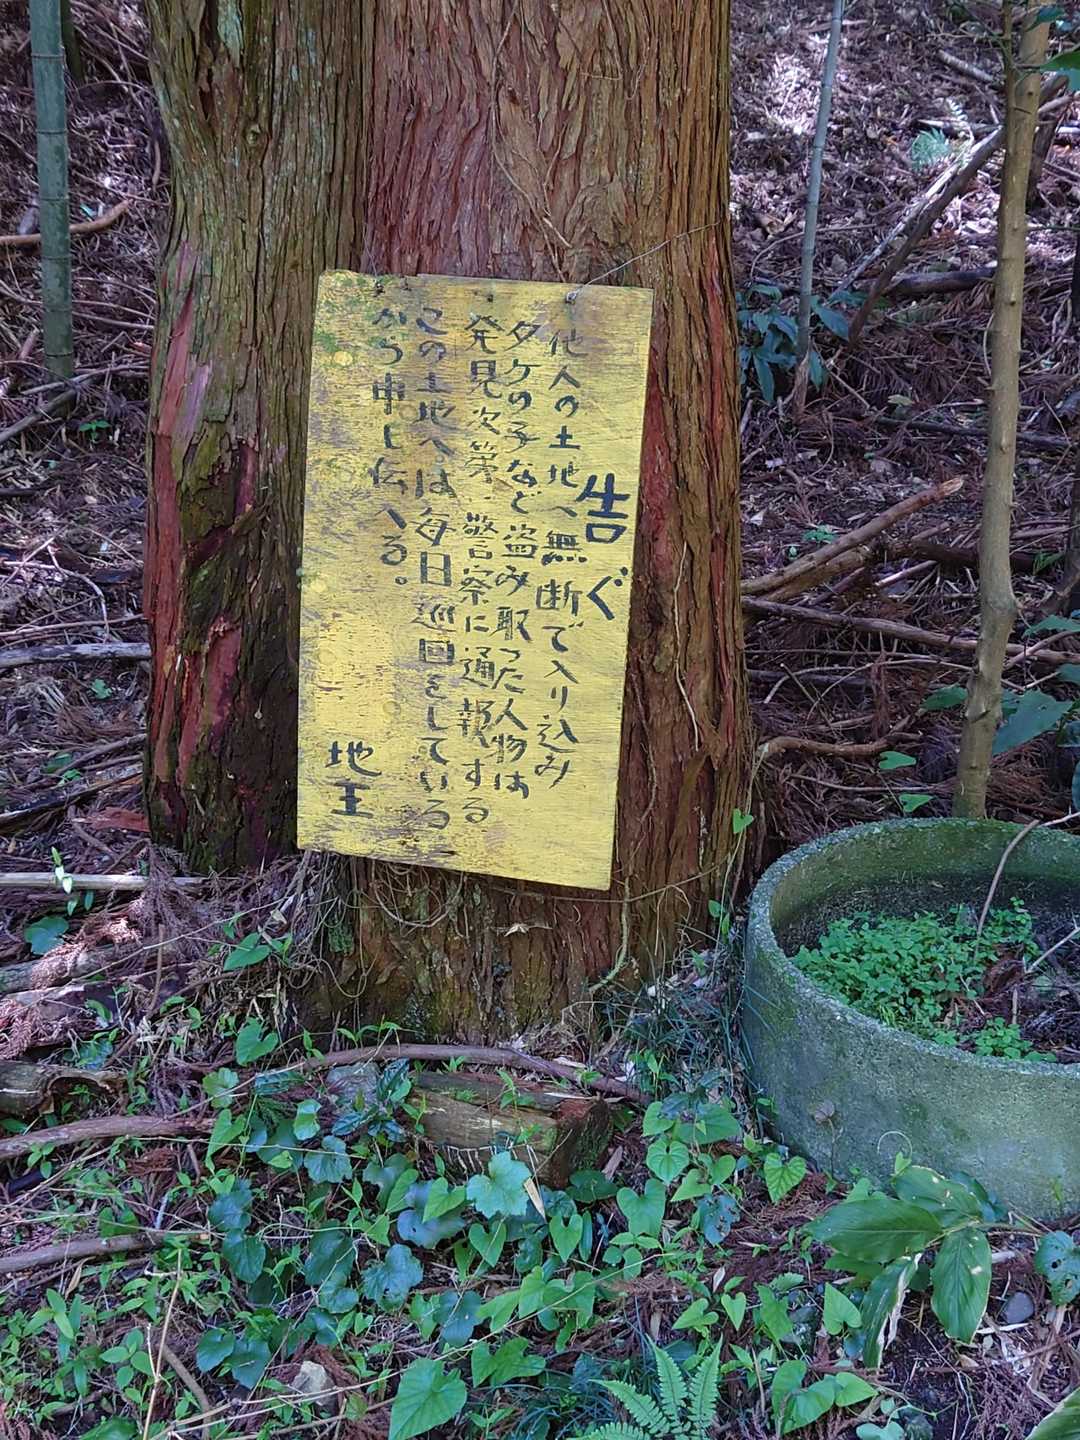 告ぐ
他人の土地へ無断で入り込み
タケの子など盗み取った人物は
発見次第、警察に通報する
この土地へは毎日巡回をしている
から申し伝へる。
地主